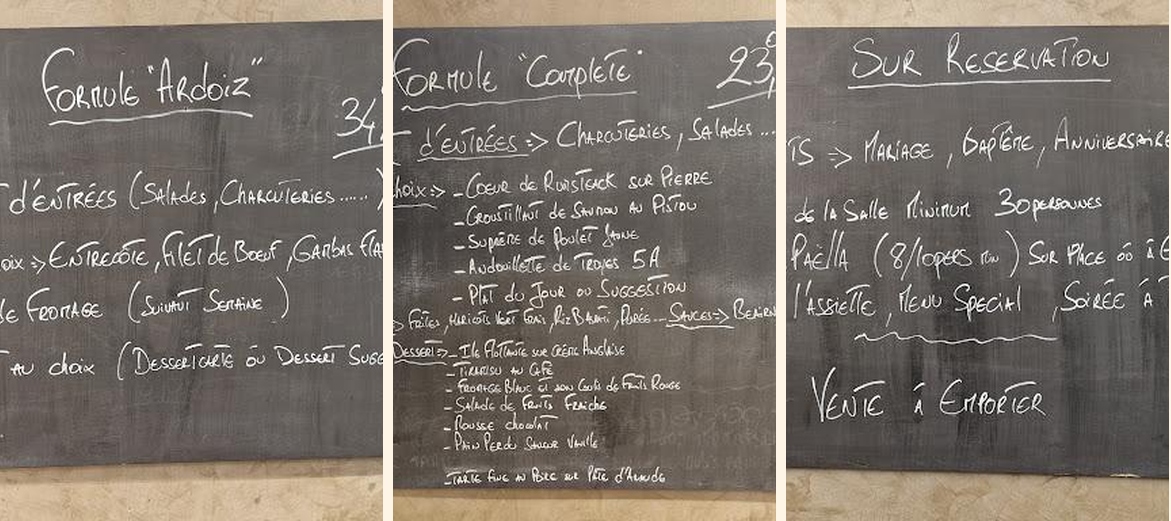 Formule "Ardoiz"
34
d'ENTRÉES (SALADES, CHARCUTERIES......)
oix => ENTRECÔTE, FILET de BOEUF, GAMBAS FLA
de FROMAGE (SUIVANT SEMAINE)
AU choix (DESSERT CARTE OU DESSERT SUGG
FORMULE "COMPLÈTE"
23,
d'ENTRÉES => CHARCUTERIES, SALADES...
hoix => - COEUR DE RUMSTEACK SUR PIERRE
- CROUSTILLANT DE SAUMON AU PISTOU
- SUPRÊME DE POULET JAUNE
- ANDOUILLETTE DE TROYES 5A
- PLAT DU JOUR OU SUGGESTION
> FRITES, HARICOTS VERT FRAIS, RIZ BASMATI, PURÉE... SAUCES => BEARN
DESSERT => - ILE FLOTTANTE SUR CRÈME ANGLAISE
- TIRAMISU AU CAFÉ
- FROMAGE BLANC ET SON COULIS DE FRUITS ROUGE
- SALADE DE FRUITS FRAICHE
- MOUSSE CHOCOLAT
- PAIN PERDU SAVEUR VANILLE
- TARTE FINE AU POIRE SUR PÂTE d'AMANDE
SUR RESERVATION
TS => MARIAGE, BAPTÊME, ANNIVERSAIRE
de la Salle MINIMUM 30 PERSONNES
PAËLLA (8/10 PERS MIN) SUR PLACE OÙ À E
l'ASSIETTE, MENU SPECIAL, SOIRÉE À
VENTE À EMPORTER